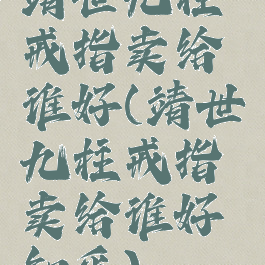 靖世九柱
戒指卖给
谁好(靖世
九柱戒指
卖给谁好
知乎)